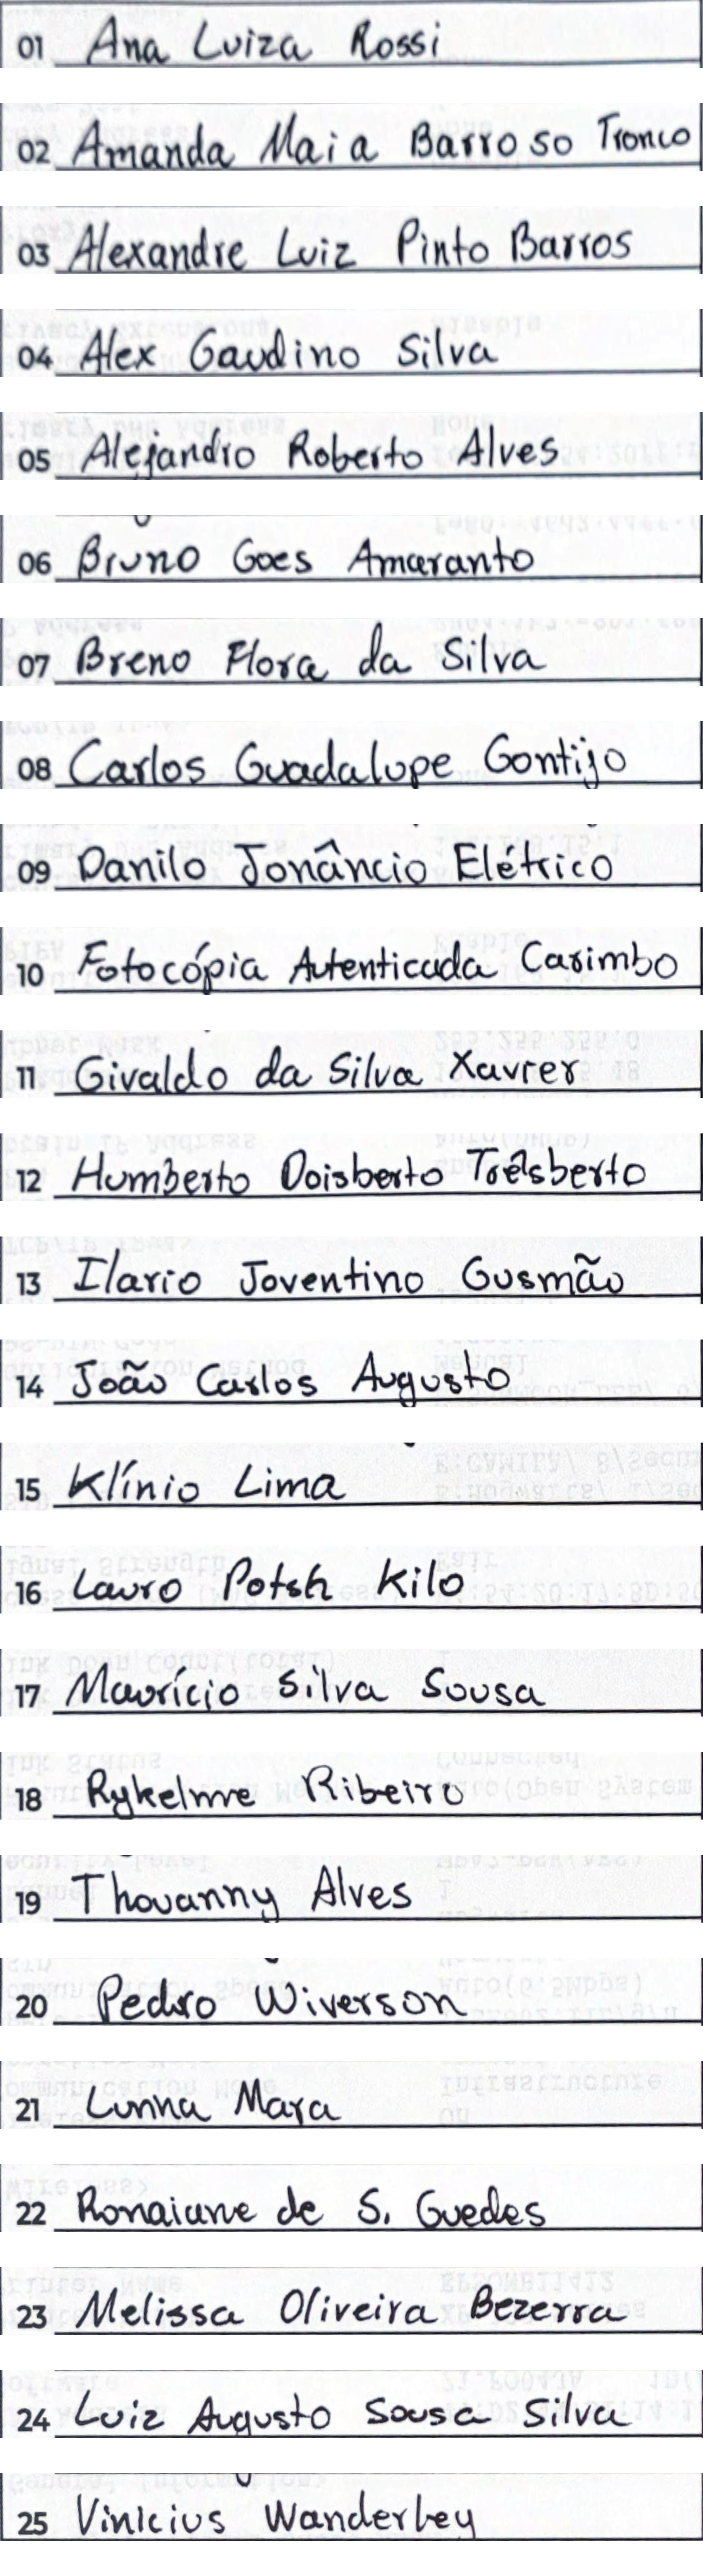 01 Ana Luiza Rossi
02 Amanda Maia Barroso Tronco
03 Alexandre Luiz Pinto Barros
04 Alex Gaudino Silva
05 Alejandro Roberto Alves
06 Bruno Goes Amaranto
07 Breno Flora da Silva
08 Carlos Guadalupe Gontijo
09 Danilo Jonâncio Elétrico
10 Fotocópia Autenticada Carimbo
11 Givaldo da Silva Xavier
12 Humberto Doisberto Trêsberto
13 Ilario Joventino Gusmão
14 João Carlos Augusto
15 Klínio Lima
16 Lauro Potsk Kilo
17 Maurício Silva Sousa
18 Rykelme Ribeiro
19 Thovanny Alves
20 Pedro Wiverson
21 Lunna Mara
22 Ronaiane de S. Guedes
23 Melissa Oliveira Bezerra
24 Luiz Augusto Sousa Silva
25 Vinicius Wanderley